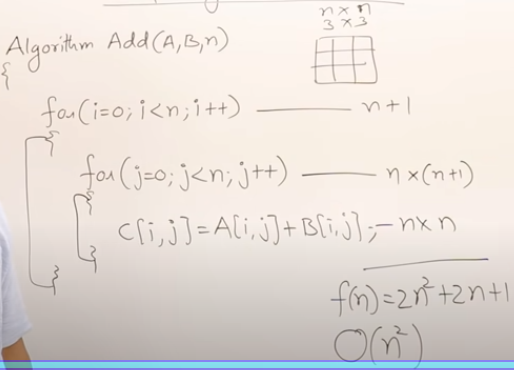 n x n
3 x 3
Algorithm Add(A,B,n)
{
for(i=0; i<n; i++) ——— n+1
{
for(j=0; j<n; j++) ——— n x (n+1)
{
C[i,j] = A[i,j] + B[i,j]; — n x n
}
}
f(n) = 2n² + 2n + 1
O(n²)